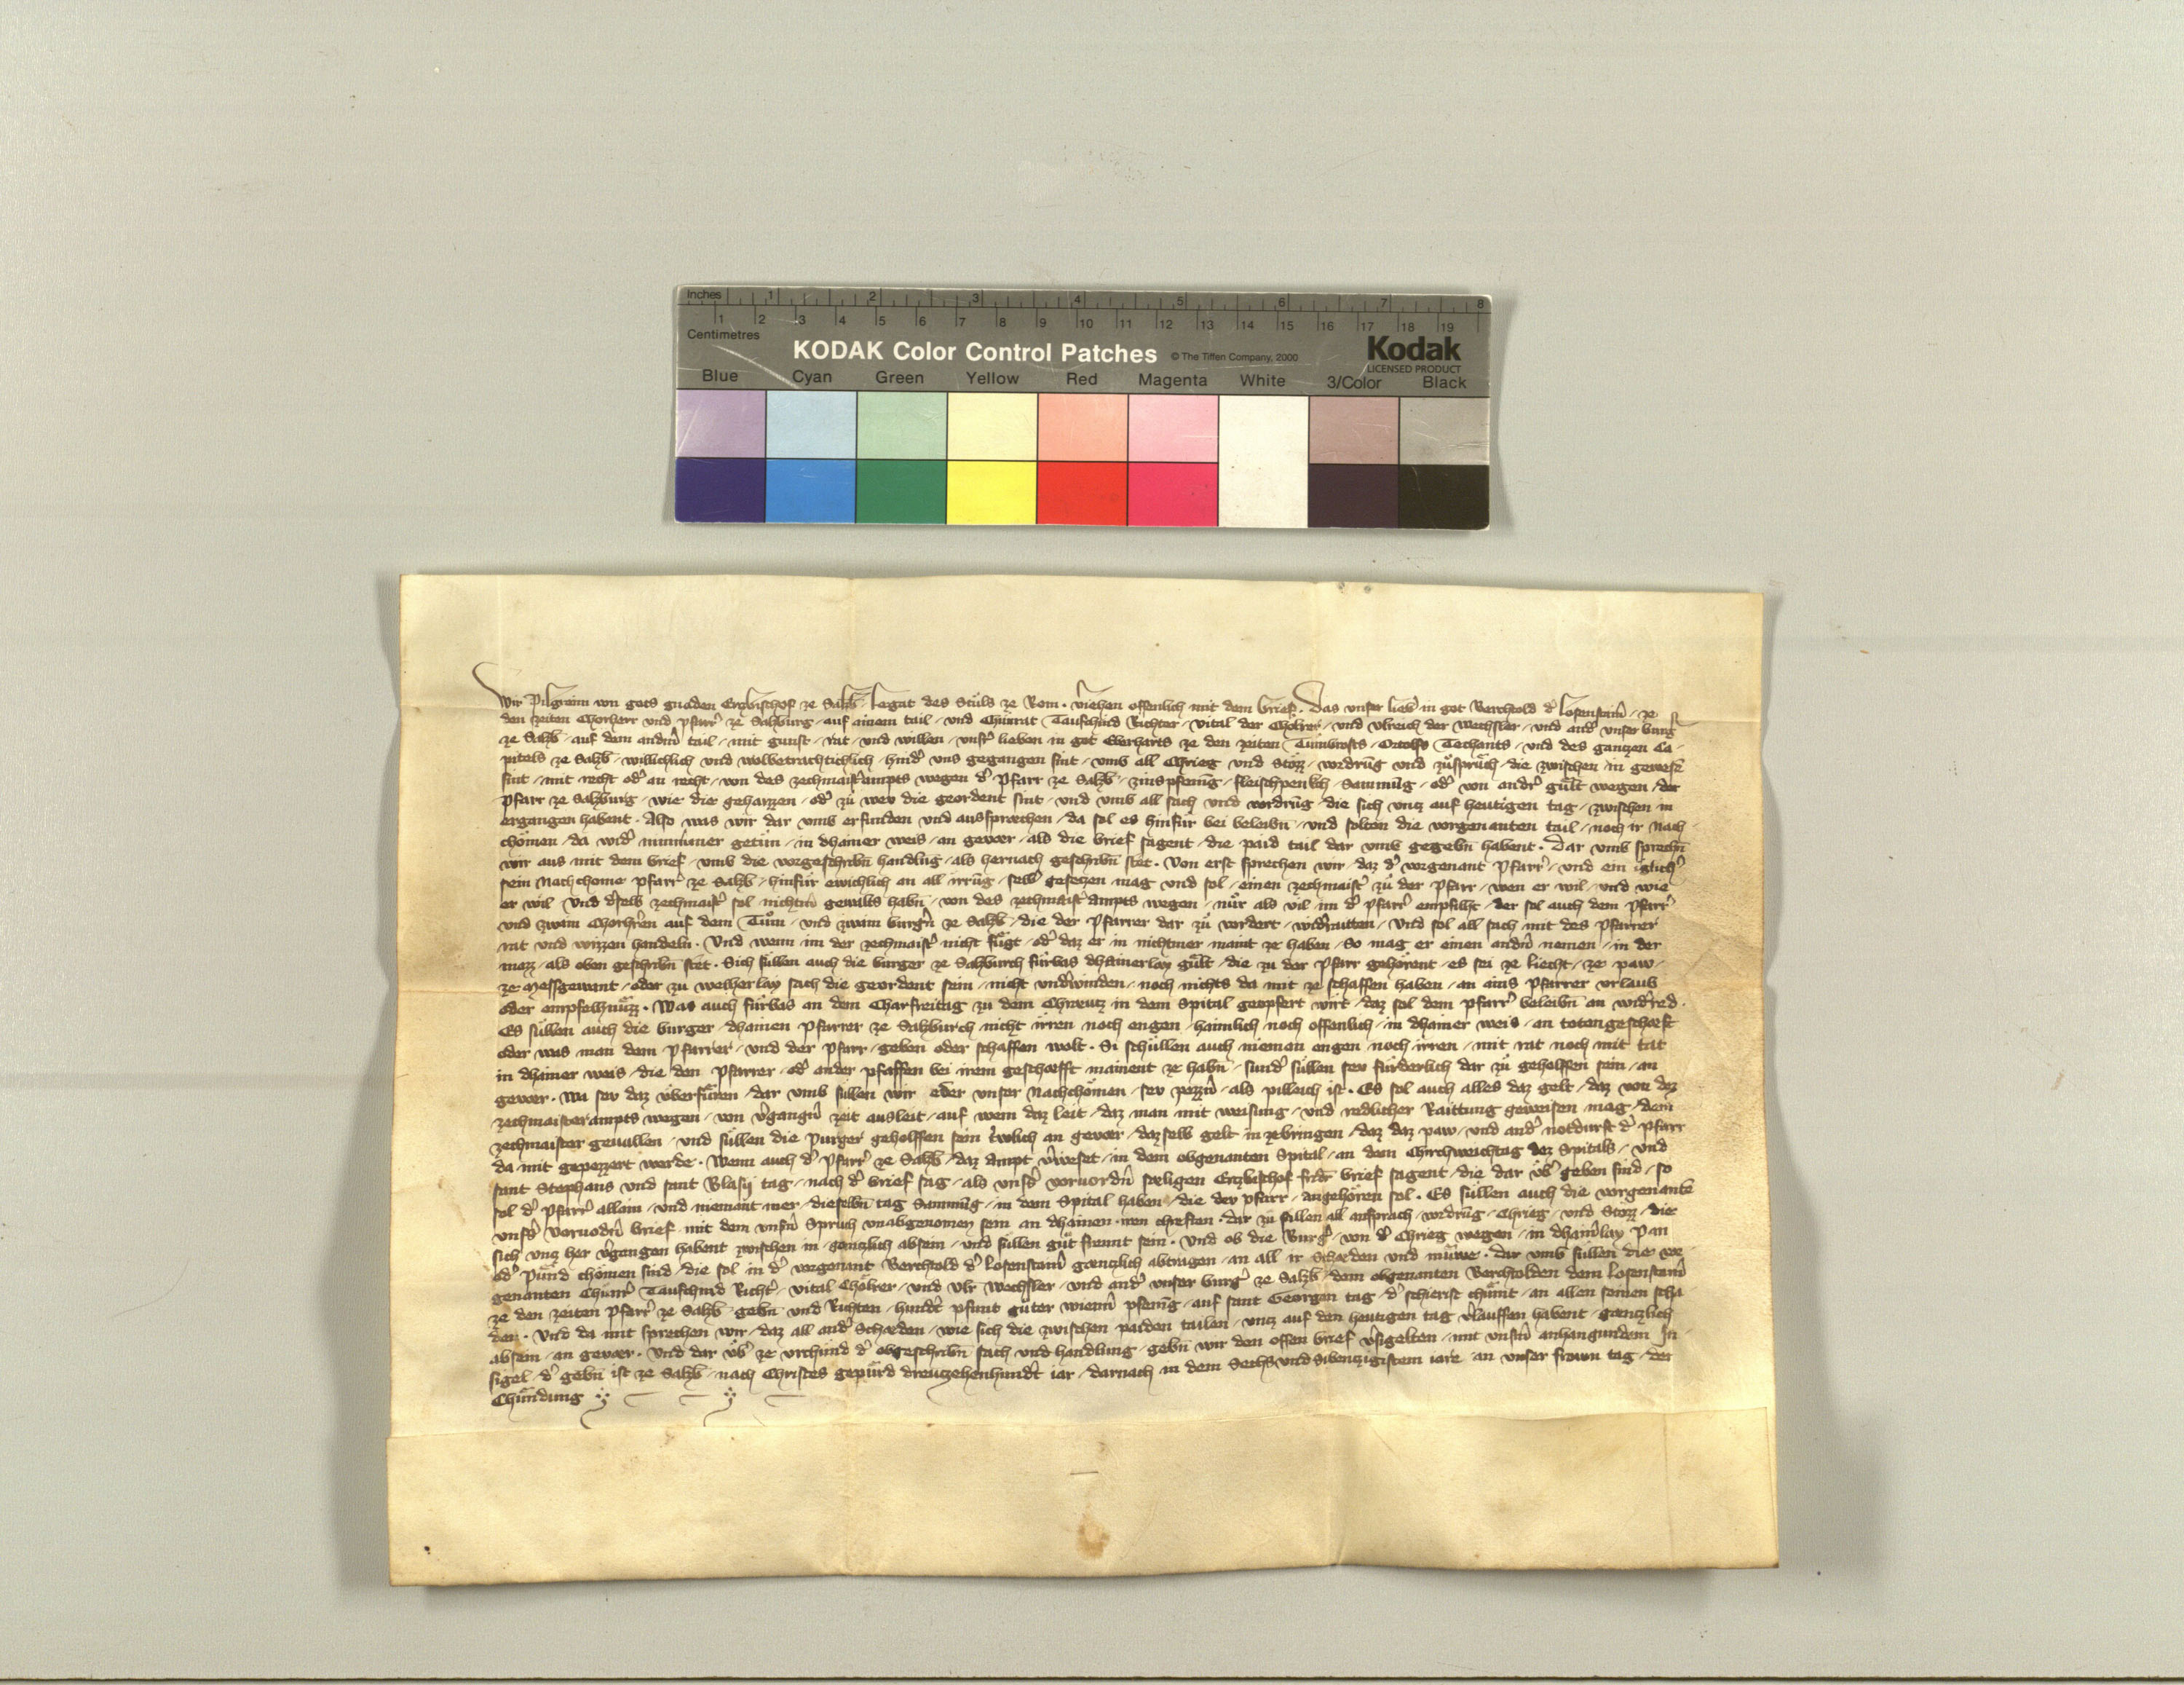 Inches 1 2 3 4 5 6 7 8
1 2 3 4 5 6 7 8 9 10 11 12 13 14 15 16 17 18 19
Centimetres
KODAK Color Control Patches © The Tiffen Company, 2000 Kodak
LICENSED PRODUCT
Blue Cyan Green Yellow Red Magenta White 3/Color Black
Wir Pilgreim von gots gnaden Erzbischof ze Salzb / Legat des Stuls ze Rom · v̂iehen offenlich mit dem brief · Das unser lieb̂ in got Berchtold d̂ Losenstain̂ / ze
den zeiten Chorherr und pfarr̂ ze Salzburg / auf ainem tail / und Chunrat Tauschind Richter / Vital der Chölrer / und Ulreich der Wechsler / und and̂ unser burĝ
ze Salzb / auf dem andn̂ tail / mit gunst / rat / und willen / unsr̂ lieben in got Eberharts ze den zeiten Tumbrosts / Ortolfs Techants / und des ganzen Ca-
pitels ze Salzb / willichlich und wolbetrachtichlich / hind̂ uns gegangen sint / umb all Chrieg und Stözz / vordrūg und zuspruch / die zwischen in gewesē
sint / mit recht od̂ an recht / von des zechmaist̂ampts wegen d̂ Pfarr ze Salzb / zinspfenīg / fleischpenkch / Sammūg / od̂ von andr̂ gült wegen / der
Pfarr ze Salzburg / wie die gehaizzen / od̂ zu wev die geordent sint / und umb all sach und vordrūg / die sich uncz auf heutigen tag / zwischen in
ergangen habent · Also was wir dar umb erfunden und aussprechen / da sol es hinfür bei beleibn̄ / und solten die vorgenanten tail / noch ir Nach-
chömen / da wid̂ nimmmer getün / in dhainer weis / an gevær / als die brief sagent / die paid tail dar umb gegebn̄ habent · Dar umb sprechn̄
wir aus mit dem brief / umb die vorgeschribn̄ handlūg / als hernach geschribn̄ stet · Von erst sprechen wir / daz d̂ vorgenant Pfarr̂ / und ein iglicĥ
sein Nachchome pfarr̂ ze Salzb / hinfür ewichlich an all irrūg / selb̂ gesetzen mag und sol / einen zechmaist̂ zu der Pfarr / wen er wil / und wie
er wil Und d̂selb zechmaist̂ sol nichtm̂ gewalts habn̄ / von des zechmaist̂ampts wegen / nur als vil im d̂ pfarr̂ empfilht / der sol auch dem pfarr̂
und zwain Chorhr̂en auf dem Tum / und zwain burgn̂ ze Salzb / die der Pfarrer dar zu vordert / wid̂raitten / Und sol all sach mit des Pfarrer
rat und wizzen handeln · Und wenn im der zechmaist̂ nicht fugt / od̂ daz er in nichtmer maint ze haben / So mag er einen andn̂ nemen / in der
mazz / als oben geschribn̄ stet · Sich sullen auch die burger ze Salzburch fürbas dhainerlay gült / die zu der Pfarr gehörent / es sei ze liecht / ze paw /
ze Messgewant / oder zu welherlay sach die geordent sein / nicht und̂winden / noch nichts da mit ze schaffen haben / an ains Pfarrer urlaub
oder empfelhnuzz · Was auch fürbas an dem Charfreitag zu dem Chreutz in dem Spital geopfert wirt / daz sol dem pfarr̂ beleibn̄ an wid̂red ·
Es sullen auch die burger / dhainen Pfarrer ze Salzburch nicht irren noch engen / haimlich noch offenlich / in dhainer weis / an totengeschæft
oder was man dem Pfarrer / und der Pfarr / geben oder schaffen wolt · Si schullen auch niemen engen noch irren / mit rat noch mit tat
in dhainer weis / die den Pfarrer / od̂ ander pfaffen bei irem geschæfft mainent ze habn̄ / sund̂ sullen sev fürderlich dar zu geholffen sein / an
gevær · Wa sev daz überfüren / dar umb sullen wir oder unser Nachchömen / sev pezzn̂ / als pilleich ist · Es sol auch alles daz gelt / daz von dez
zechmaisterampts wegen / von v̂gangn̂ zeit ausleit / auf wem daz leit / daz man mit weisung / und redlicher Raittung geweisen mag / dem
zechmaister gevallen / und sullen die purger geholffen sein t̂wlich an gevær / dazselb gelt in zebringen / daz daz paw / und and̂ notdurft d̂ pfarr
da mit gepezzert werde · Wenn auch d̂ Pfarr̂ ze Salzb / daz ampt v̂weset / in dem obgenanten Spital / an dem Chirchweichtag dez Spitals / und
sant Stephans und sant Blasy tag / nach d̂ brief sag / als unsr̂ vorvordn̂ sæligen Erzbischof fridr̄ brief sagent / die dar üb̂ geben sind / so
sol d̂ Pfarr̂ allain / und niemant mer / dieselbn̄ tag Sammūg / in dem Spital haben / die der pfarr / angehören sol · Es sullen auch die vorgenantē
unsr̂ vorvodn̂ brief / mit dem unsn̂ Spruch unabgenomen sein an dhainen iren chreften · dar zu sullen all ansprach / vordrūg / Chrieg / und Stözz / die
sich uncz her v̂gangen habent zwischen in / gæntzlich absein / und sullen gut freunt sein · Und ob die Burĝ / von d̂ Chrieg wegen / in dhainlay Pan
od̂ Pünd chömen sind / die sol in d̂ vorgenant Berchtold d̂ Losenstain̂ gæntzlich abtragen / an all ir Schæden und müwe · Dar umb sullen die vor-
genanten Chunr̂ Tauschind Richt̂ / Vital Chölrer / und Ulr Wechsler / und and̂ unser burĝ ze Salzb / dem obgenanten Berchtolden dem Losenstain̂
ze den zeiten Pfarr̂ ze Salzb / gebn̄ und Richten / hund̂t pfunt guter wienn̂ pfenīg / auf sant Georgen tag / d̂ schierist chumt / an allen seinen schä-
den · Und da mit sprechen wir / daz all and̂ Schæden / wie sich die zwischen paiden tailen / uncz auf den heutigen tag v̂lauffen habent / gæntzlich
absein / an gevær · Und dar üb̂ ze urchünd d̂ obgeschribn̄ sach und handlung / gebn̄ wir den offen brief v̂sigelten / mit unsn̂ anhangundem In-
sigel / d̂ gebn̄ ist ze Salzb / nach Christes gepürd dreuzehenhund̂t iar / darnach in dem Sechs und Sibenczigistem iare / an unser frown tag / der
Chündung